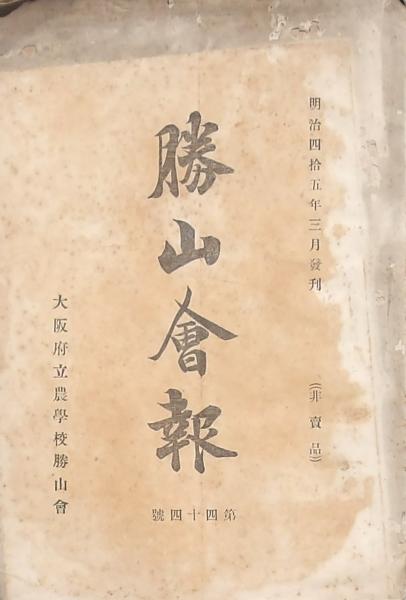 明治四拾五年三月發刊
（非賣品）
勝山會報
第四十四號
大阪府立農學校勝山會